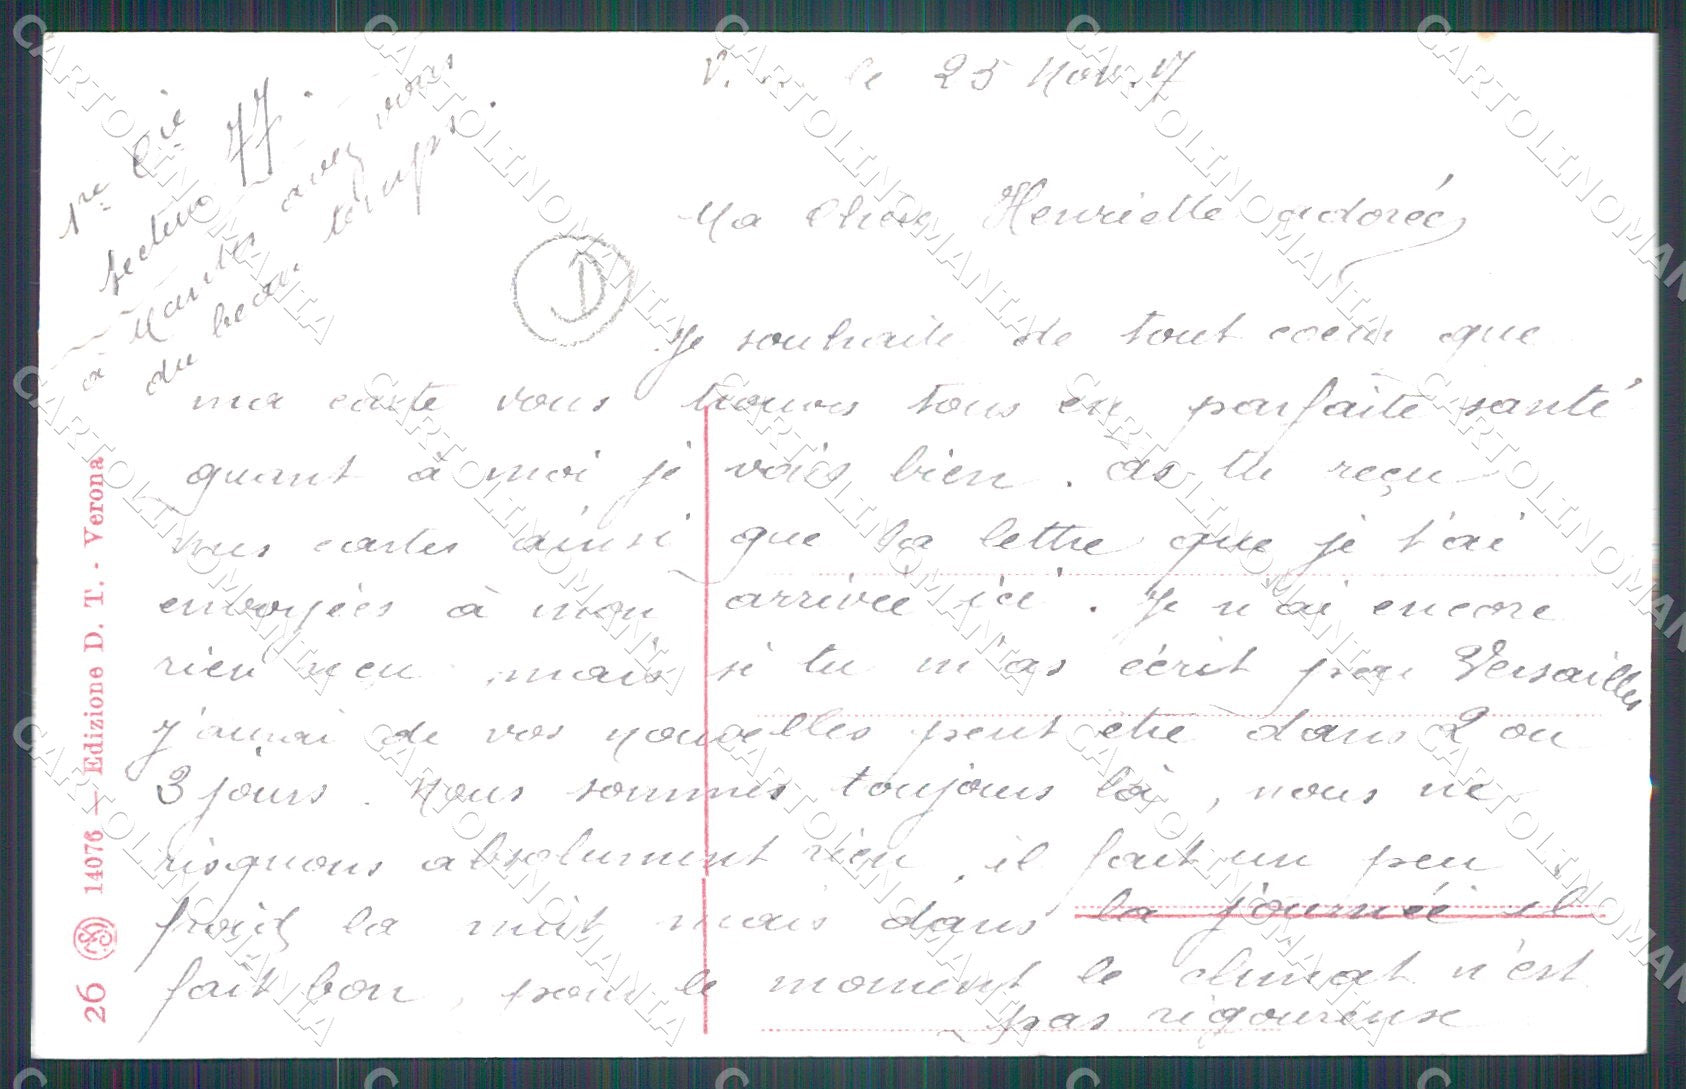 le 25 Nov. 17
1re Cie
secteur 77.
à Nantes avez vous
du beau temps.
Ma Chère Henriette adorée,
D
Je souhaite de tout coeur que
ma carte vous trouves tous en parfaite santé
quant à moi je vais bien. as-tu reçu
mes cartes ainsi que la lettre que je t'ai
envoyées à mon arrivée ici. Je n'ai encore
rien reçu mais si tu m'as écrit pour Versailles
j'aurai de vos nouvelles peut être dans 2 ou
3 jours. Nous sommes toujours là, nous ne
risquons absolument rien, il fait un peu
froid la nuit mais dans la journée il
fait bon, pour le moment le climat n'est
pas rigoureuse
26 14076 — Edizione D. T. - Verona
CARTOLINOMANIA